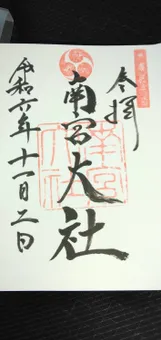 奉拝
南宮大社
令和六年十一月二日
南宮大社